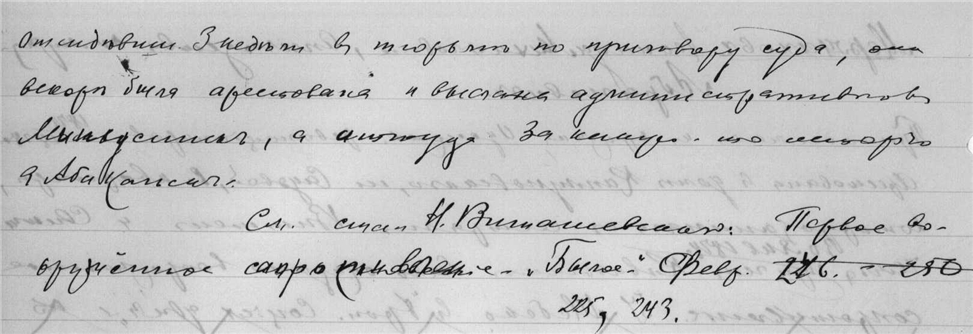 отсидѣвши 3 недѣли въ тюрьмѣ по приговору суда, она
вскорѣ была арестована и выслана административно въ
Минусинскъ, а оттуда за
въ Абаканск.
См. стат. Н. Виташевскаго: Первое во-
оружённое сопротивление - "Былое" Февр. 226. - 250
225, 243.